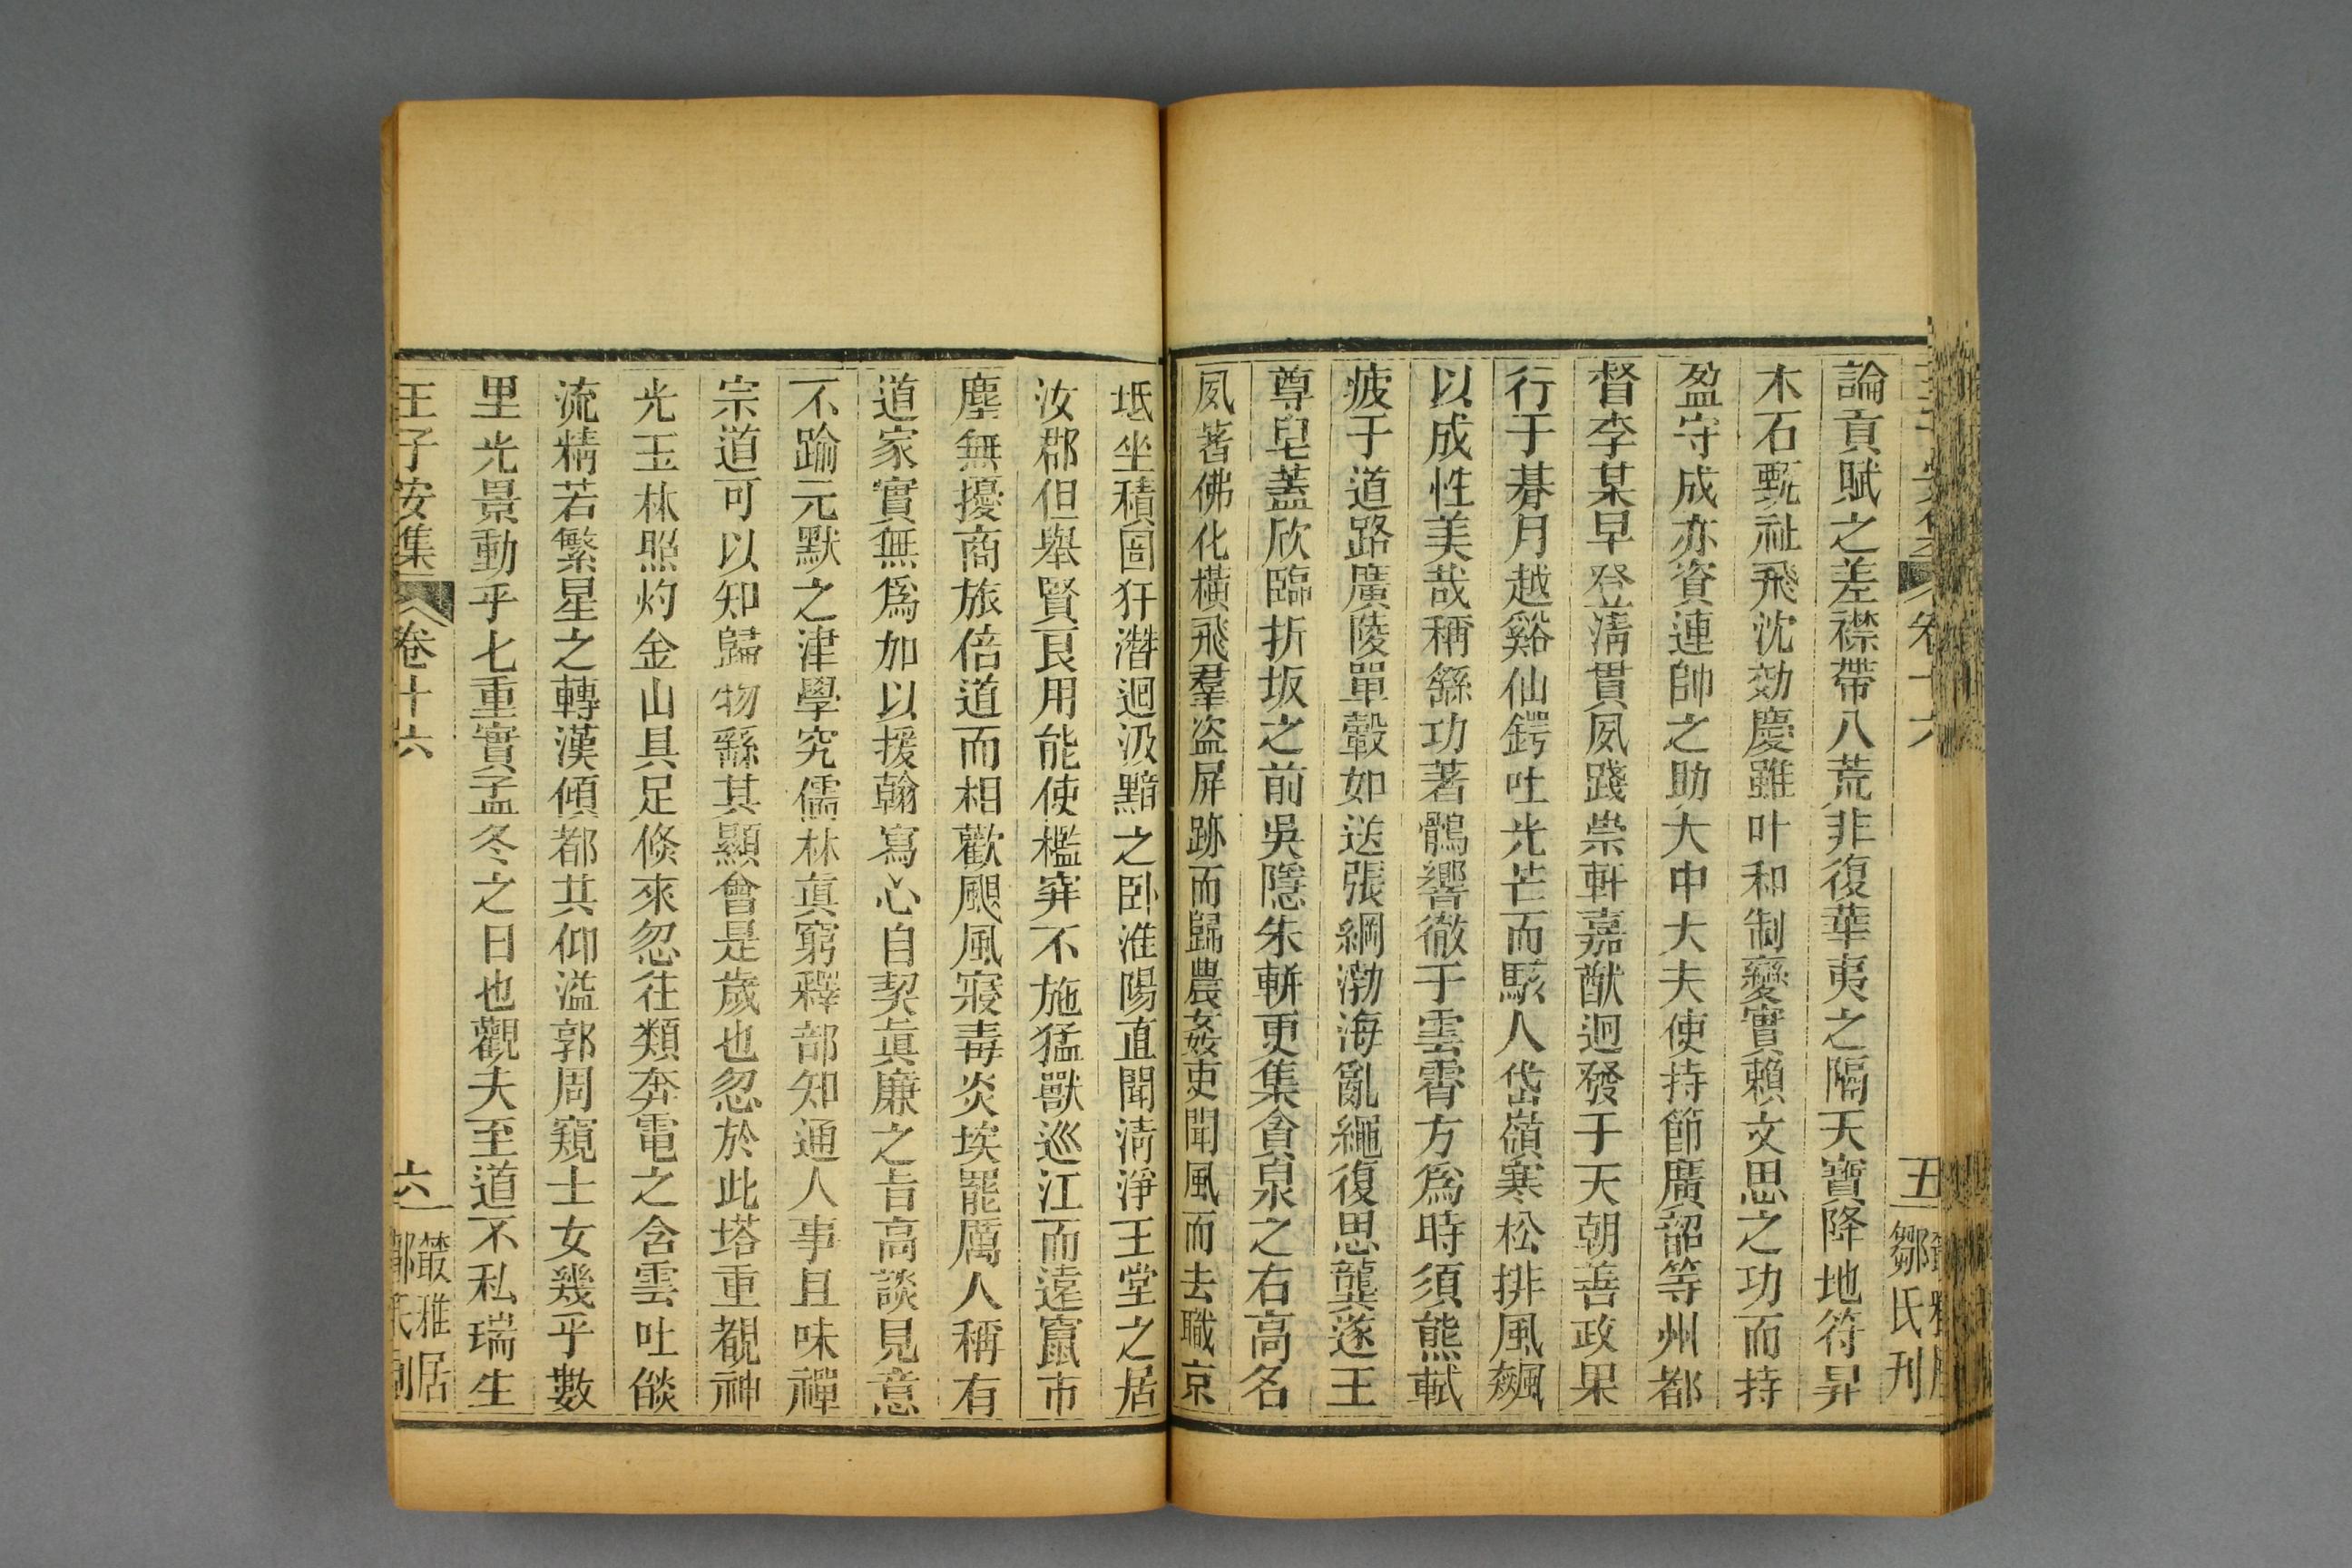 論貢賦之差襟帶八荒非復華夷之隔天寶降地符昇
木石甄祉飛沈効慶雖叶和制變實賴文思之功而持
盈守成亦資連帥之助大中大夫使持節廣韶等州都
督李某早登淸貫夙踐崇軒嘉猷迥發于天朝善政果
行于朞月越谿仙鍔吐光芒而駭人岱嶺寒松排風飈
以成性美哉稱繇功著鶻響徹于雲霄方爲時須熊軾
疲于道路廣陵單轂如送張綱渤海亂繩復思龔遂王
尊皁蓋欣臨折坂之前吳隱朱軿更集貪泉之右高名
夙著佛化橫飛羣盜屏跡而歸農姦吏聞風而去職京
坻坐積囹犴潛迴汲黯之卧淮陽直聞淸淨王堂之居
汝郡但舉賢良用能使檻穽不施猛獸巡江而遠竄市
塵無擾商旅倍道而相歡颶風寢毒炎埃罷厲人稱有
道家實無爲加以援翰寫心自契眞廉之旨高談見意
不踰元默之津學究儒林眞窮釋部知通人事且味禪
宗道可以知歸物繇其顯會是歲也忽於此塔重覩神
光玉林照灼金山具足倏來忽往類奔電之含雲吐燄
流精若繁星之轉漢傾都共仰溢郭周窺士女幾乎數
里光景動乎七重實孟冬之日也觀夫至道不私瑞生
王子安集 卷十六 六 叢雅居
卷十六 五 鄒氏刊